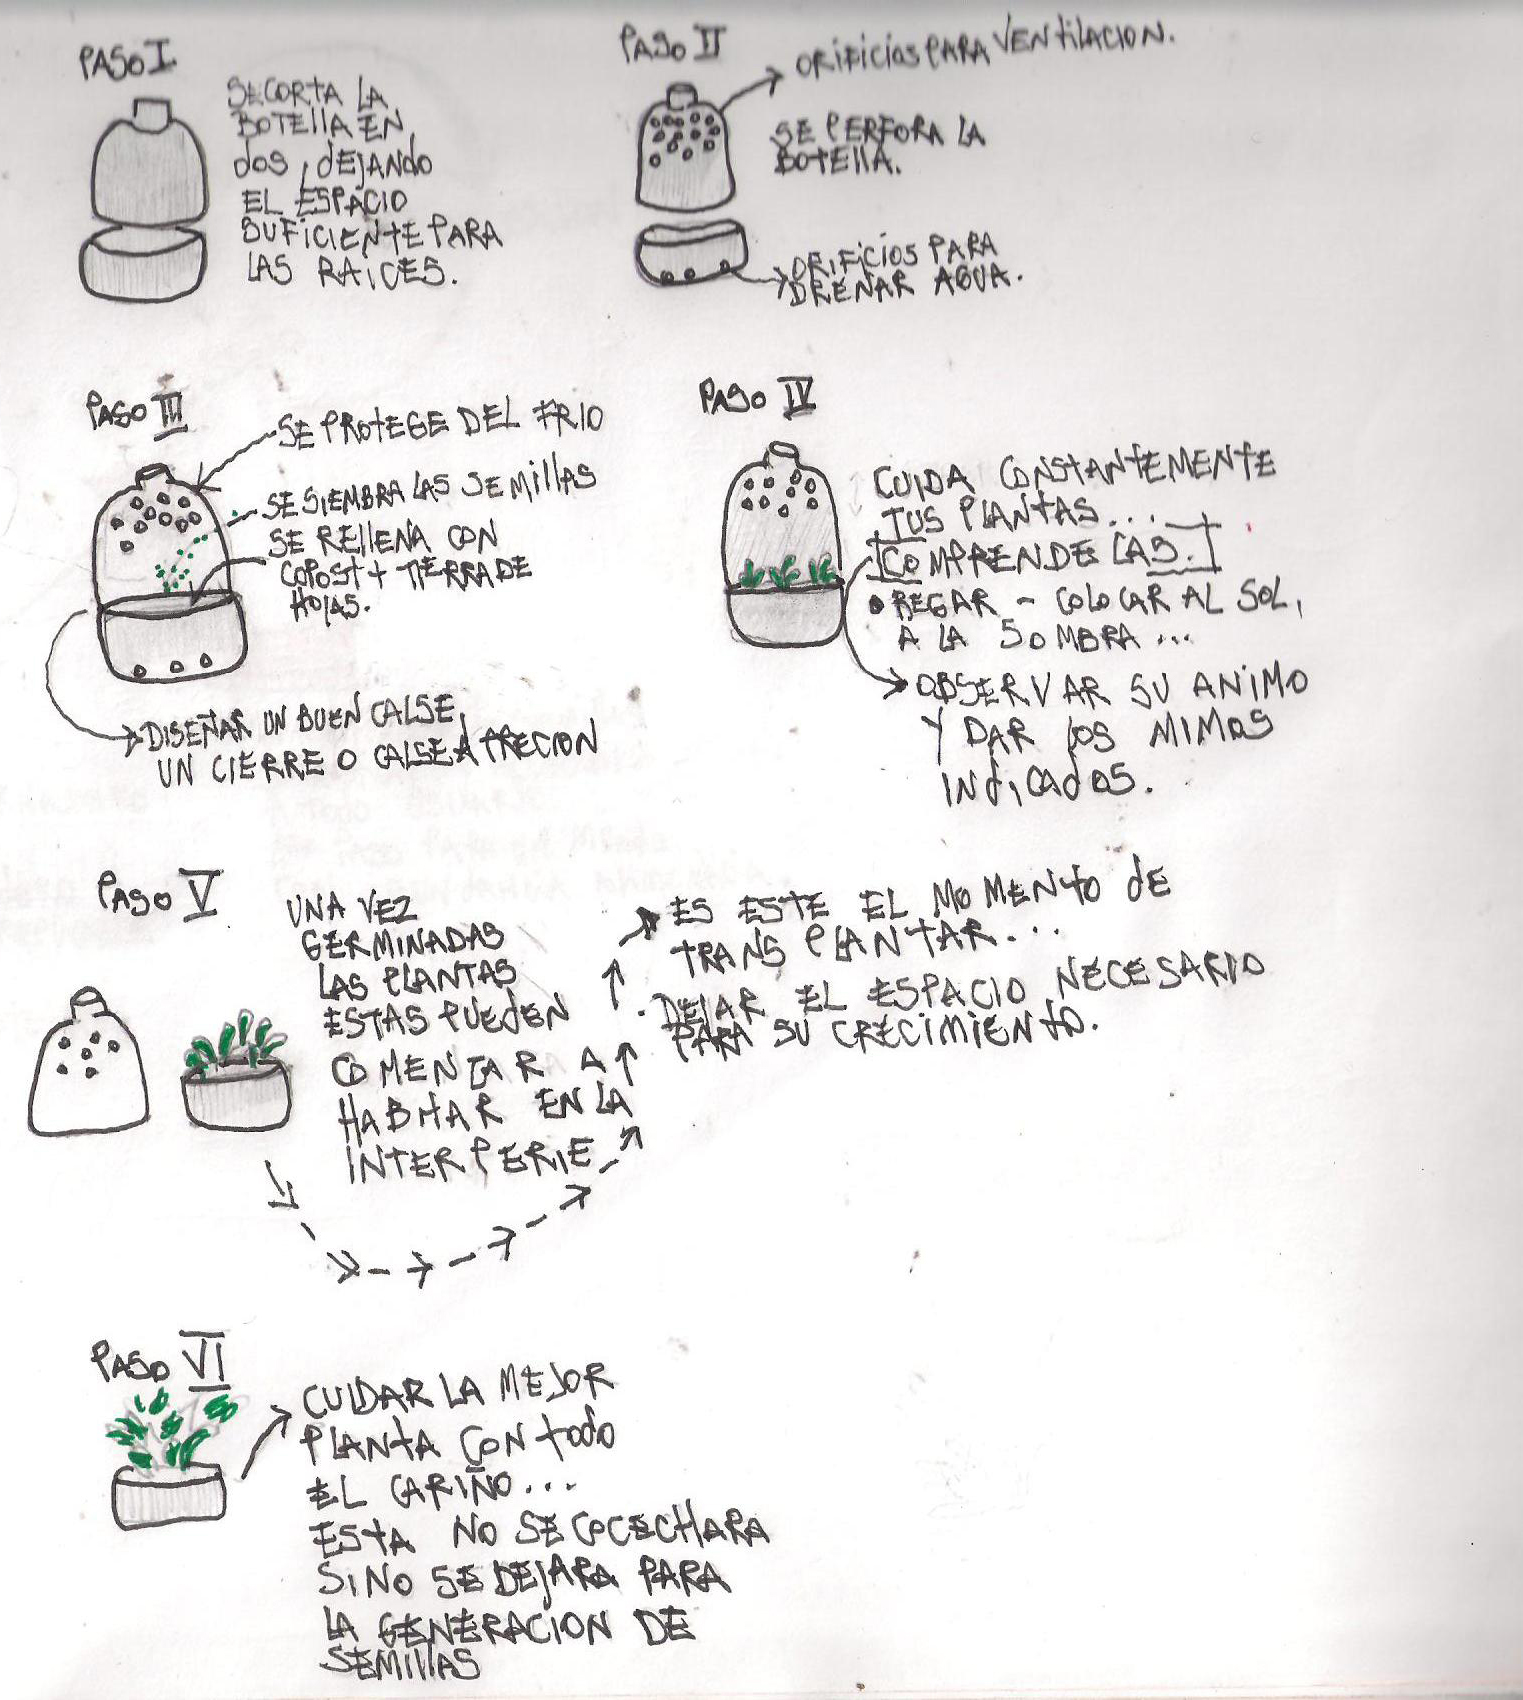 PASO I
SE CORTA LA
BOTELLA EN
dOS, dEJANdO
EL ESPACIO
SUFICIENTE PARA
LAS RAICES.
PASO II
ORIFICIOS PARA VENTILACION.
SE PERFORA LA
BOTELLA.
ORIFICIOS PARA
DRENAR AGUA.
PASO III
SE PROTEGE DEL FRIO
SE SIEMBRA LAS SEMILLAS
SE RELLENA CON
COPOST + TIERRA DE
HOJAS.
DISEÑAR UN BUEN CALSE,
UN CIERRE O CALSE A PRECION
PASO IV
CUIDA CONSTANTEMENTE
TUS PLANTAS...
COMPRENDELAS.
• REGAR - COLOCAR AL SOL,
A LA SOMBRA...
OBSERVAR SU ANIMO
Y DAR LOS MIMOS
INdICAdOS.
PASO V
UNA VEZ
GERMINADAS
LAS PLANTAS
ESTAS PUEDEN
COMENZAR A
HABITAR EN LA
INTERPERIE
ES ESTE EL MOMENTO dE
TRANSPLANTAR...
. DEJAR EL ESPACIO NECESARIO
PARA SU CRECIMIENTO.
PASO VI
CUIDAR LA MEJOR
PLANTA CON TOdO
EL CARIÑO...
ESTA NO SE COCECHARA
SINO SE DEJARA PARA
LA GENERACION DE
SEMILLAS